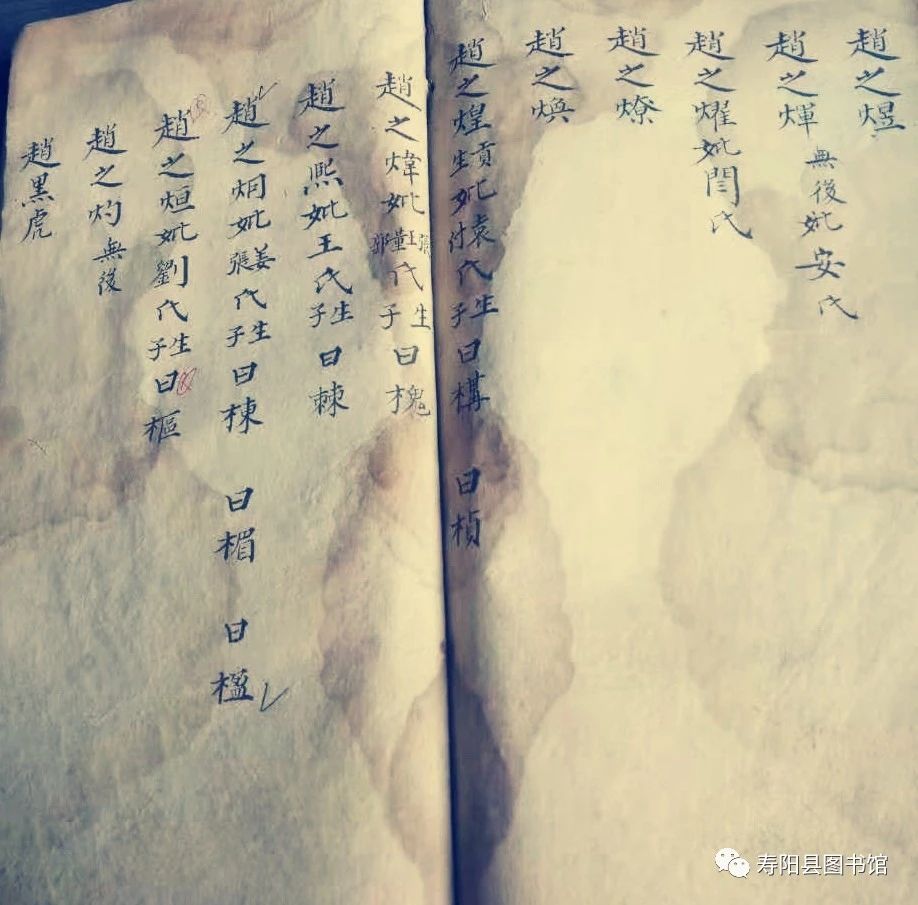 趙之煜
趙之煇無後妣安氏
趙之燿妣閆氏
趙之燎
趙之煥
趙之煌貢生妣袁付氏生子曰構 曰楨
趙之煒妣張王董郭氏生子曰槐
趙之熙妣王氏生子曰棘
趙之炯妣姜張氏生子曰棟 曰楣 曰楹
趙之烜妣劉氏生子曰樞
趙之灼無後
趙黑虎
寿阳县图书馆